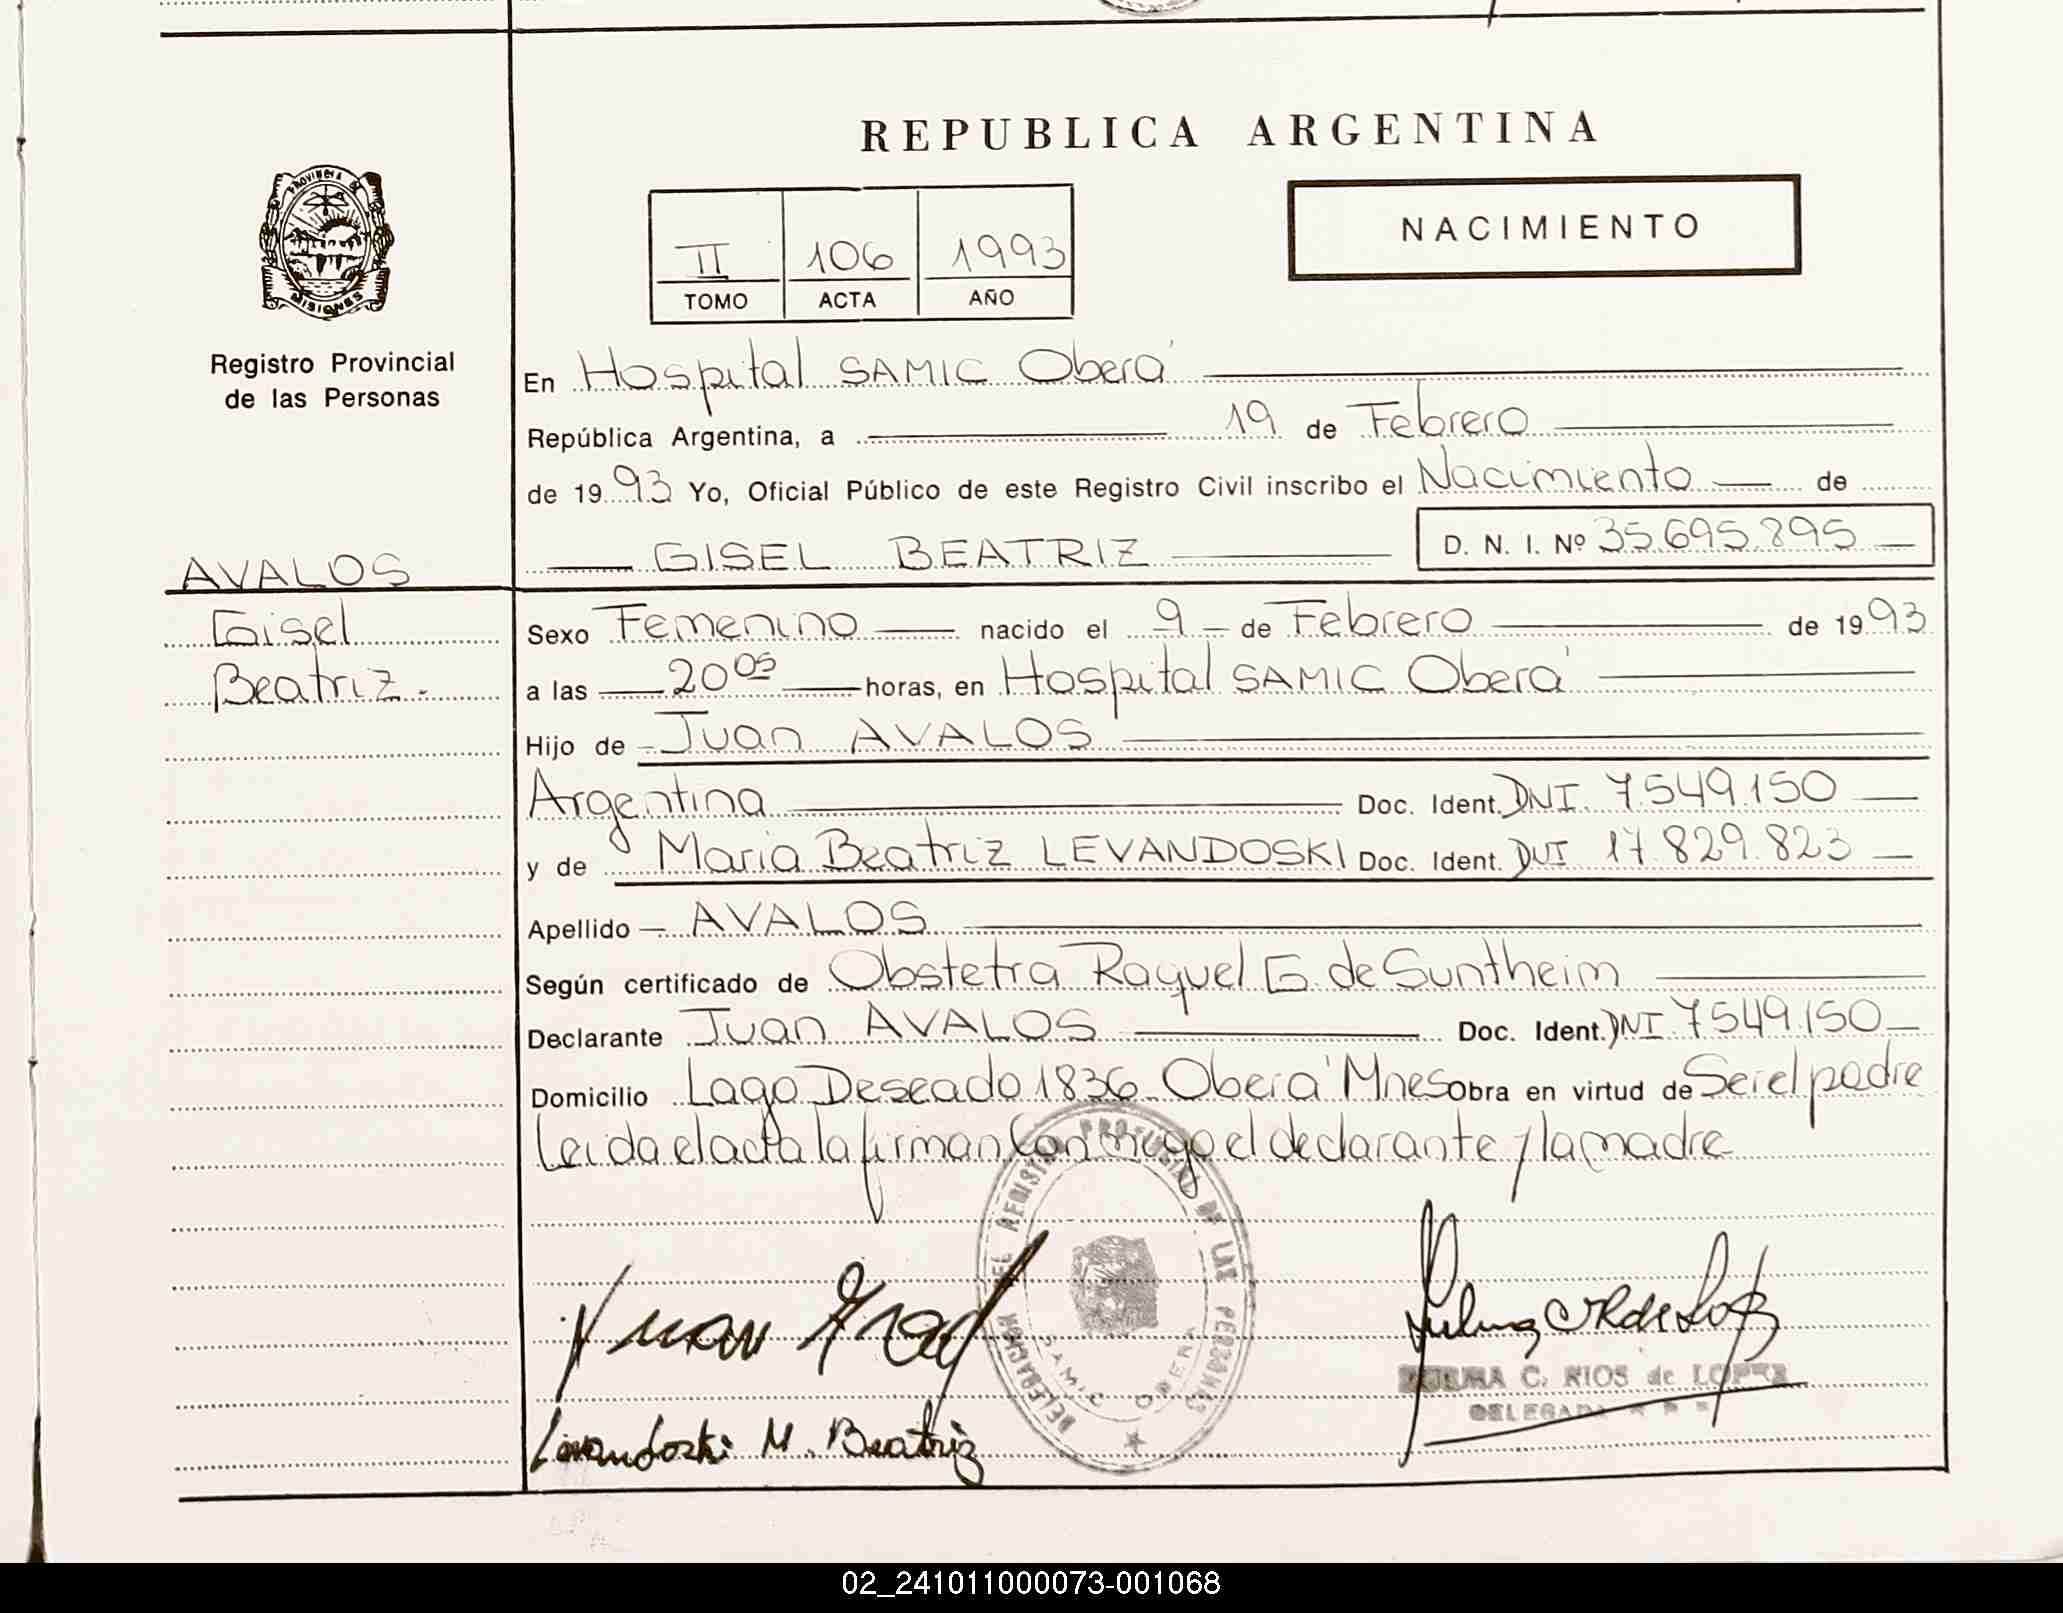 REPUBLICA ARGENTINA
PROVINCIA DE
MISIONES
Registro Provincial
de las Personas
II 106 1993
TOMO ACTA AÑO
NACIMIENTO
En Hospital SAMIC Oberá
República Argentina, a 19 de Febrero
de 19 93 Yo, Oficial Público de este Registro Civil inscribo el Nacimiento de
GISEL BEATRIZ D. N. I. Nº 35.695.895
AVALOS
Gisel
Beatriz.
Sexo Femenino nacido el 9 de Febrero de 19 93
a las 20 05 horas, en Hospital SAMIC Oberá
Hijo de Juan AVALOS
Argentina Doc. Ident. DNI 7.549.150
y de Maria Beatriz LEVANDOSKI Doc. Ident. DNI 17.829.823
Apellido AVALOS
Según certificado de Obstetra Raquel G. de Suntheim
Declarante Juan AVALOS Doc. Ident. DNI 7.549.150
Domicilio Lago Deseado 1836 Oberá Mnes Obra en virtud de Ser el padre
Leida el acta la firman conmigo el declarante y la madre
DELEGACION DEL REGISTRO PROVINCIAL DE LAS PERSONAS
SAMIC OBERA
Juan
Levandoski M. Beatriz
C. RIOS de LOPEZ
DELEGADA
02_241011000073-001068